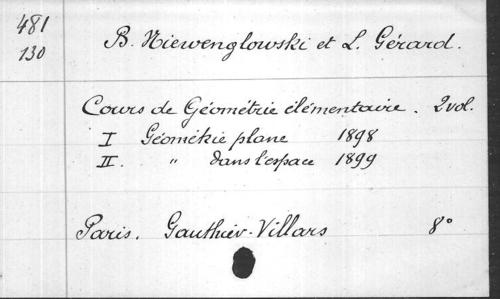 481
130
B. Niewenglowski et L. Gérard.
Cours de Géométrie élémentaire. 2 vol.
I Géométrie plane 1898
II. " dans l'espace 1899
Paris. Gauthier-Villars 8°